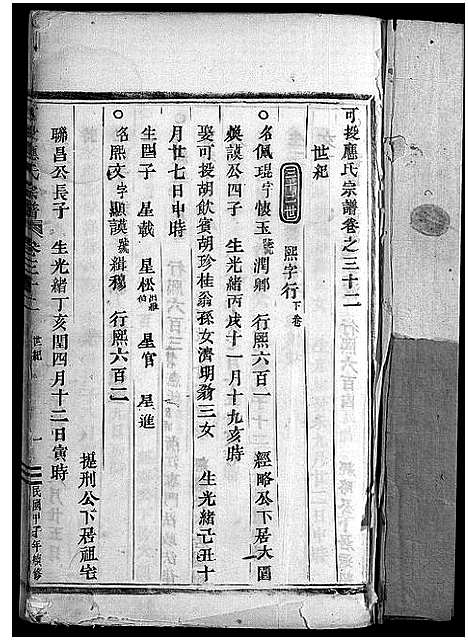 可投應氏宗譜卷之三十二
世紀
三十二世
熙字行下卷
名佩琨字懷玉號潤鄉 行熙六百一 經略公下居大園
煥謨公四子 生光緒丙戌十一月十九亥時
娶可投胡飲賓胡珍桂翁孫女濟明翁三女 生光緒己丑十
月廿七日申時
生四子 星戟 星松出繼伯 星官 星進
名熙文字顯謨號緝穆 行熙六百二 提刑公下居祖宅
聯昌公長子 生光緒丁亥閏四月十二日寅時
應氏宗譜 卷三十二 世紀 一 民國甲子年續修